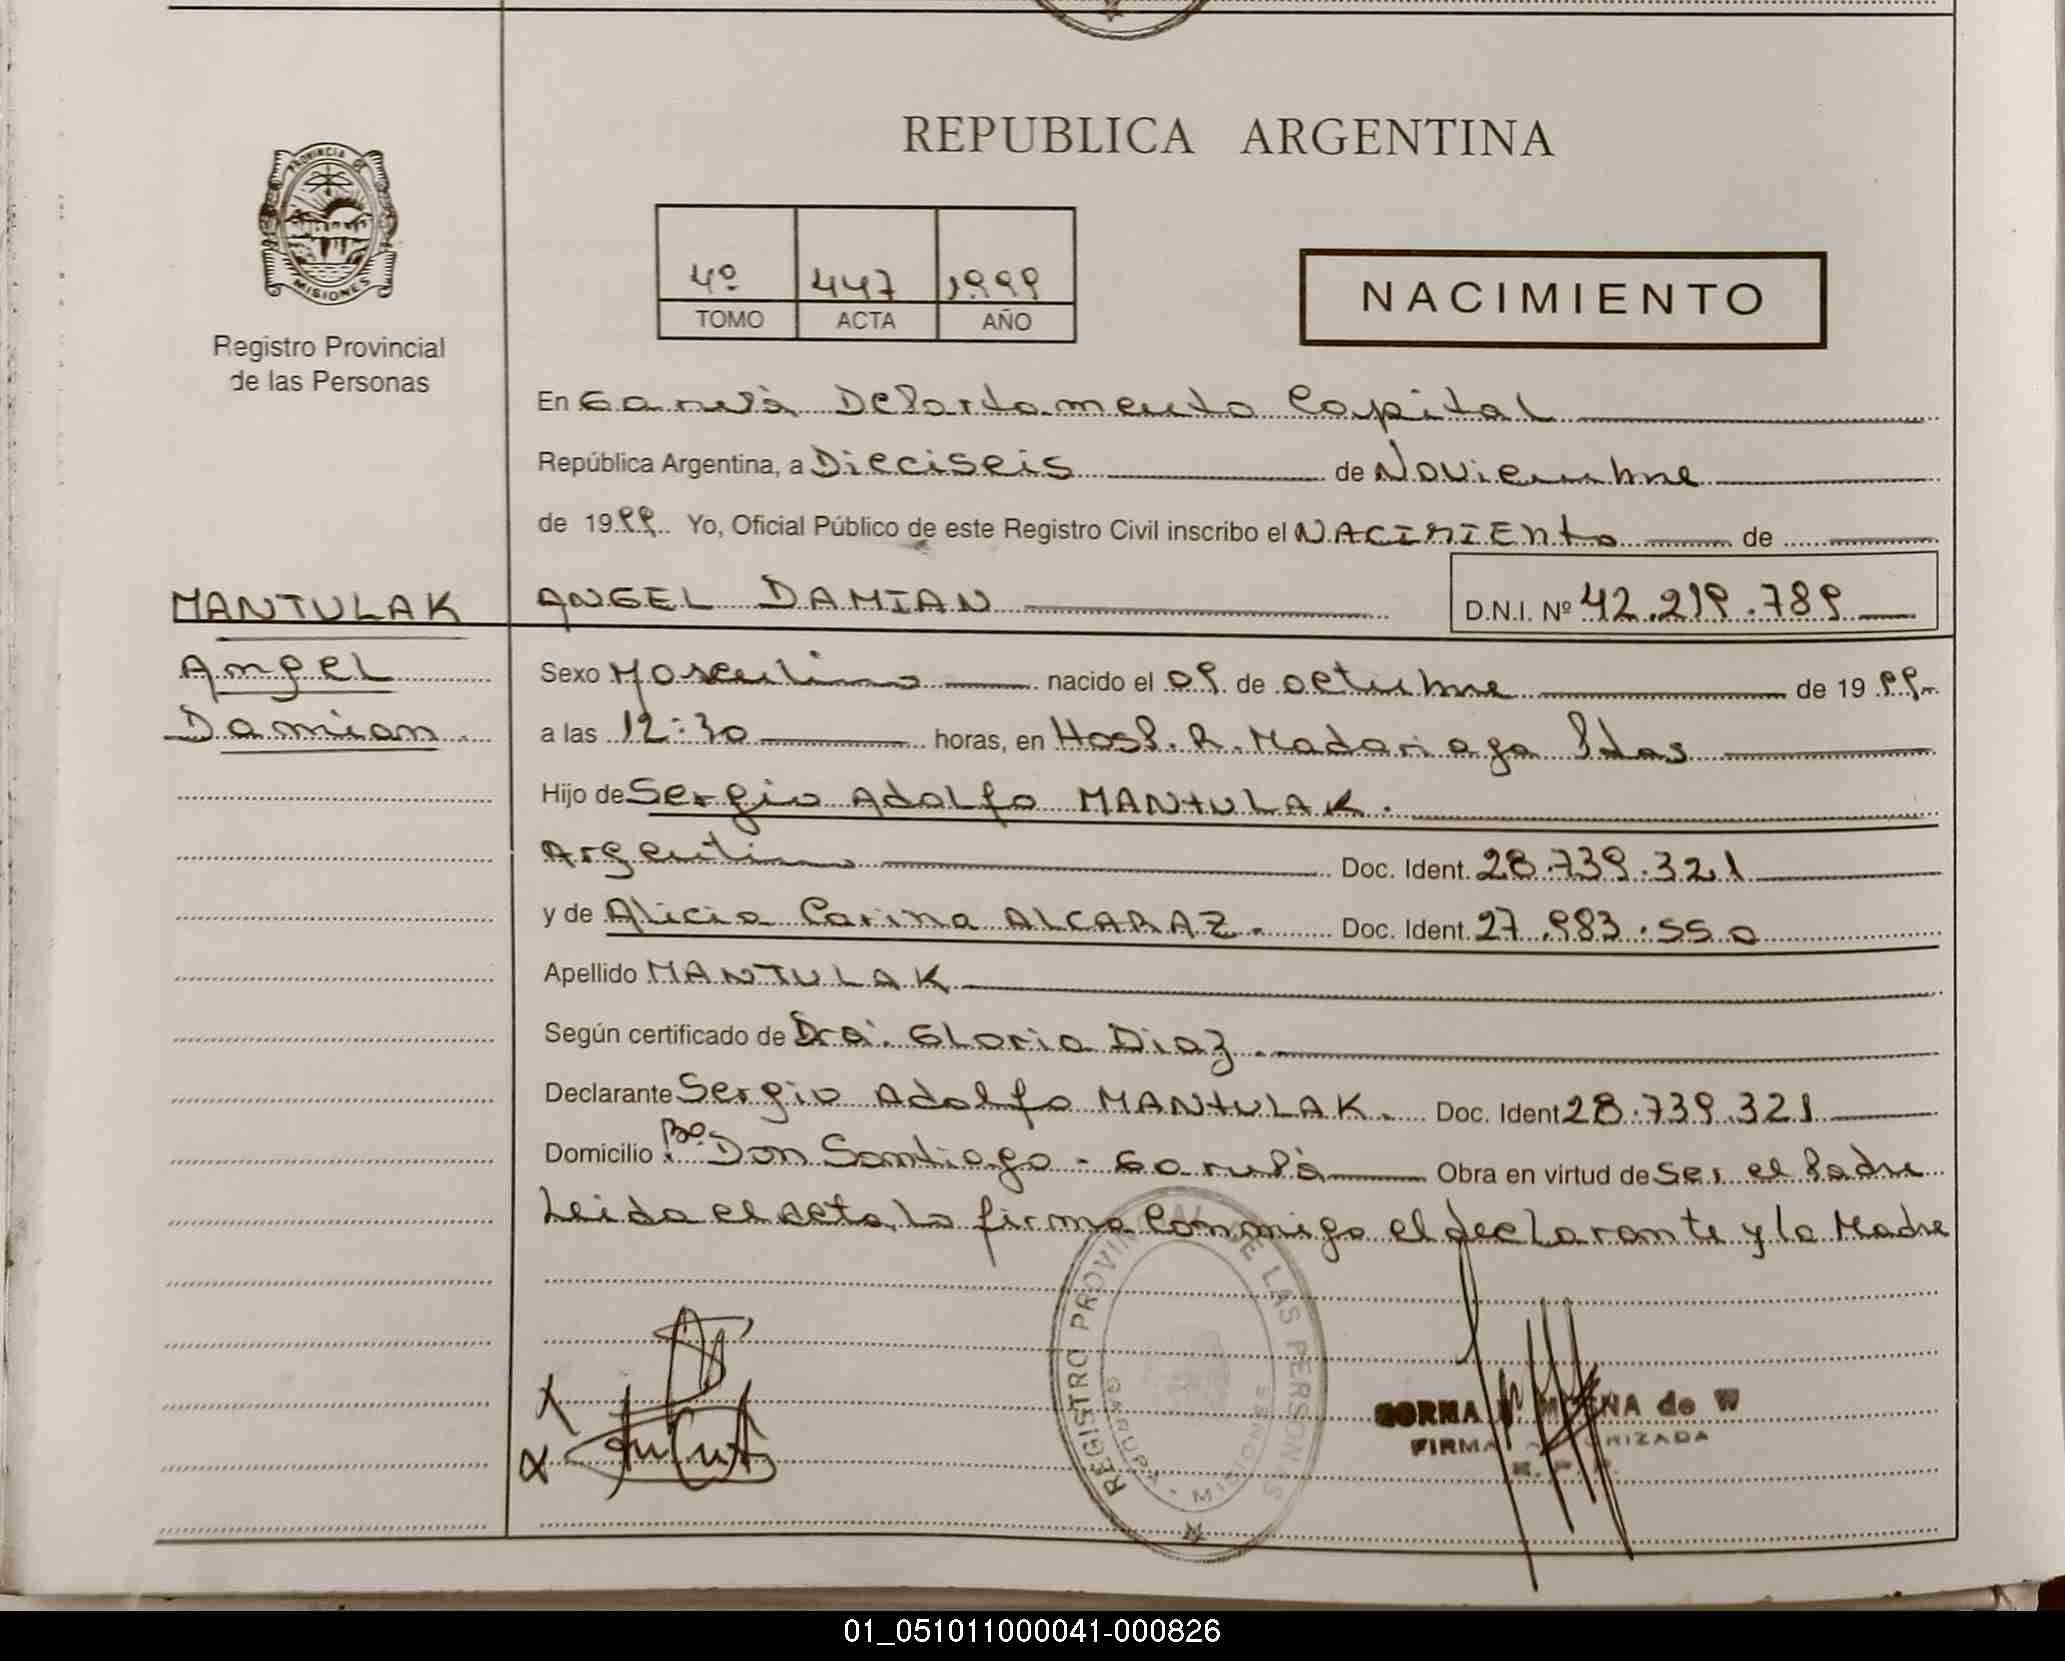 REPUBLICA ARGENTINA
PROVINCIA DE
MISIONES
Registro Provincial
de las Personas
4º 447 1999
TOMO ACTA AÑO
NACIMIENTO
En Garupá Departamento Capital
República Argentina, a Dieciseis de Noviembre
de 1999 Yo, Oficial Público de este Registro Civil inscribo el NACIMIENto de
MANTULAK ANGEL DAMIAN D.N.I. Nº 42.219.789
Angel Sexo Masculino nacido el 09 de octubre de 1999
Damian a las 12:30 horas, en Hosp. R. Madariaga Pdas
Hijo de Sergio Adolfo MANTULAK.
Argentino Doc. Ident. 28.739.321
y de Alicia Carina ALCARAZ. Doc. Ident. 27.983.550
Apellido MANTULAK
Según certificado de Dra. Gloria Diaz.
Declarante Sergio Adolfo MANTULAK. Doc. Ident 28.739.321
Domicilio Bº. Don Santiago - Garupá Obra en virtud de Ser el Padre
Leida el acta, la firma Conmigo el declarante y la Madre
REGISTRO PROVINCIAL DE LAS PERSONAS
GARUPA - MISIONES
NA de W
FIRMA AUTORIZADA
01_051011000041-000826